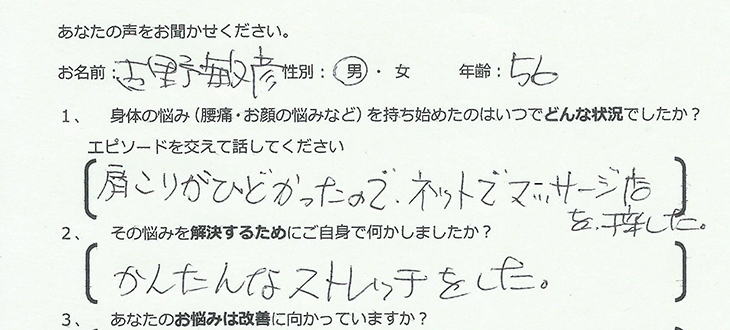 あなたの声をお聞かせください。
お名前：吉野敏彦 性別：男・女 年齢：56
1、 身体の悩み（腰痛・お顔の悩みなど）を持ち始めたのはいつでどんな状況でしたか？
エピソードを交えて話してください
肩こりがひどかったので、ネットでマッサージ店
を、探した。
2、 その悩みを解決するためにご自身で何かしましたか？
かんたんなストレッチをした。
3、 あなたのお悩みは改善に向かっていますか？